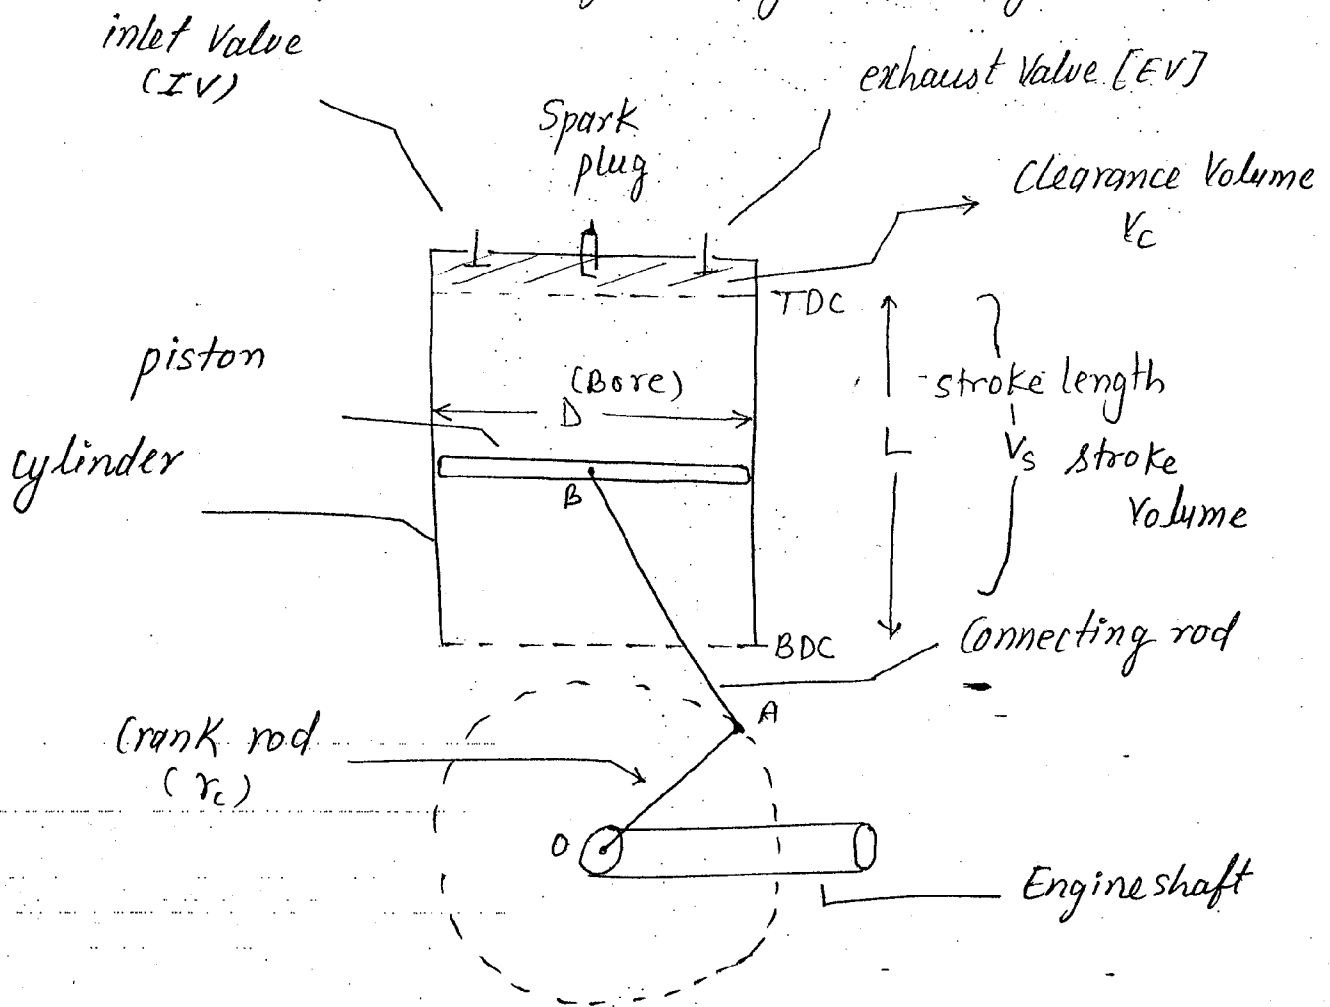 inlet Valve
(IV)
exhaust Valve [EV]
Spark
plug
Clearance Volume
Vc
TDC
piston
(Bore)
D
stroke length
L
Vs stroke
Volume
cylinder
B
BDC
Connecting rod
A
Crank rod
(rc)
O
Engine shaft